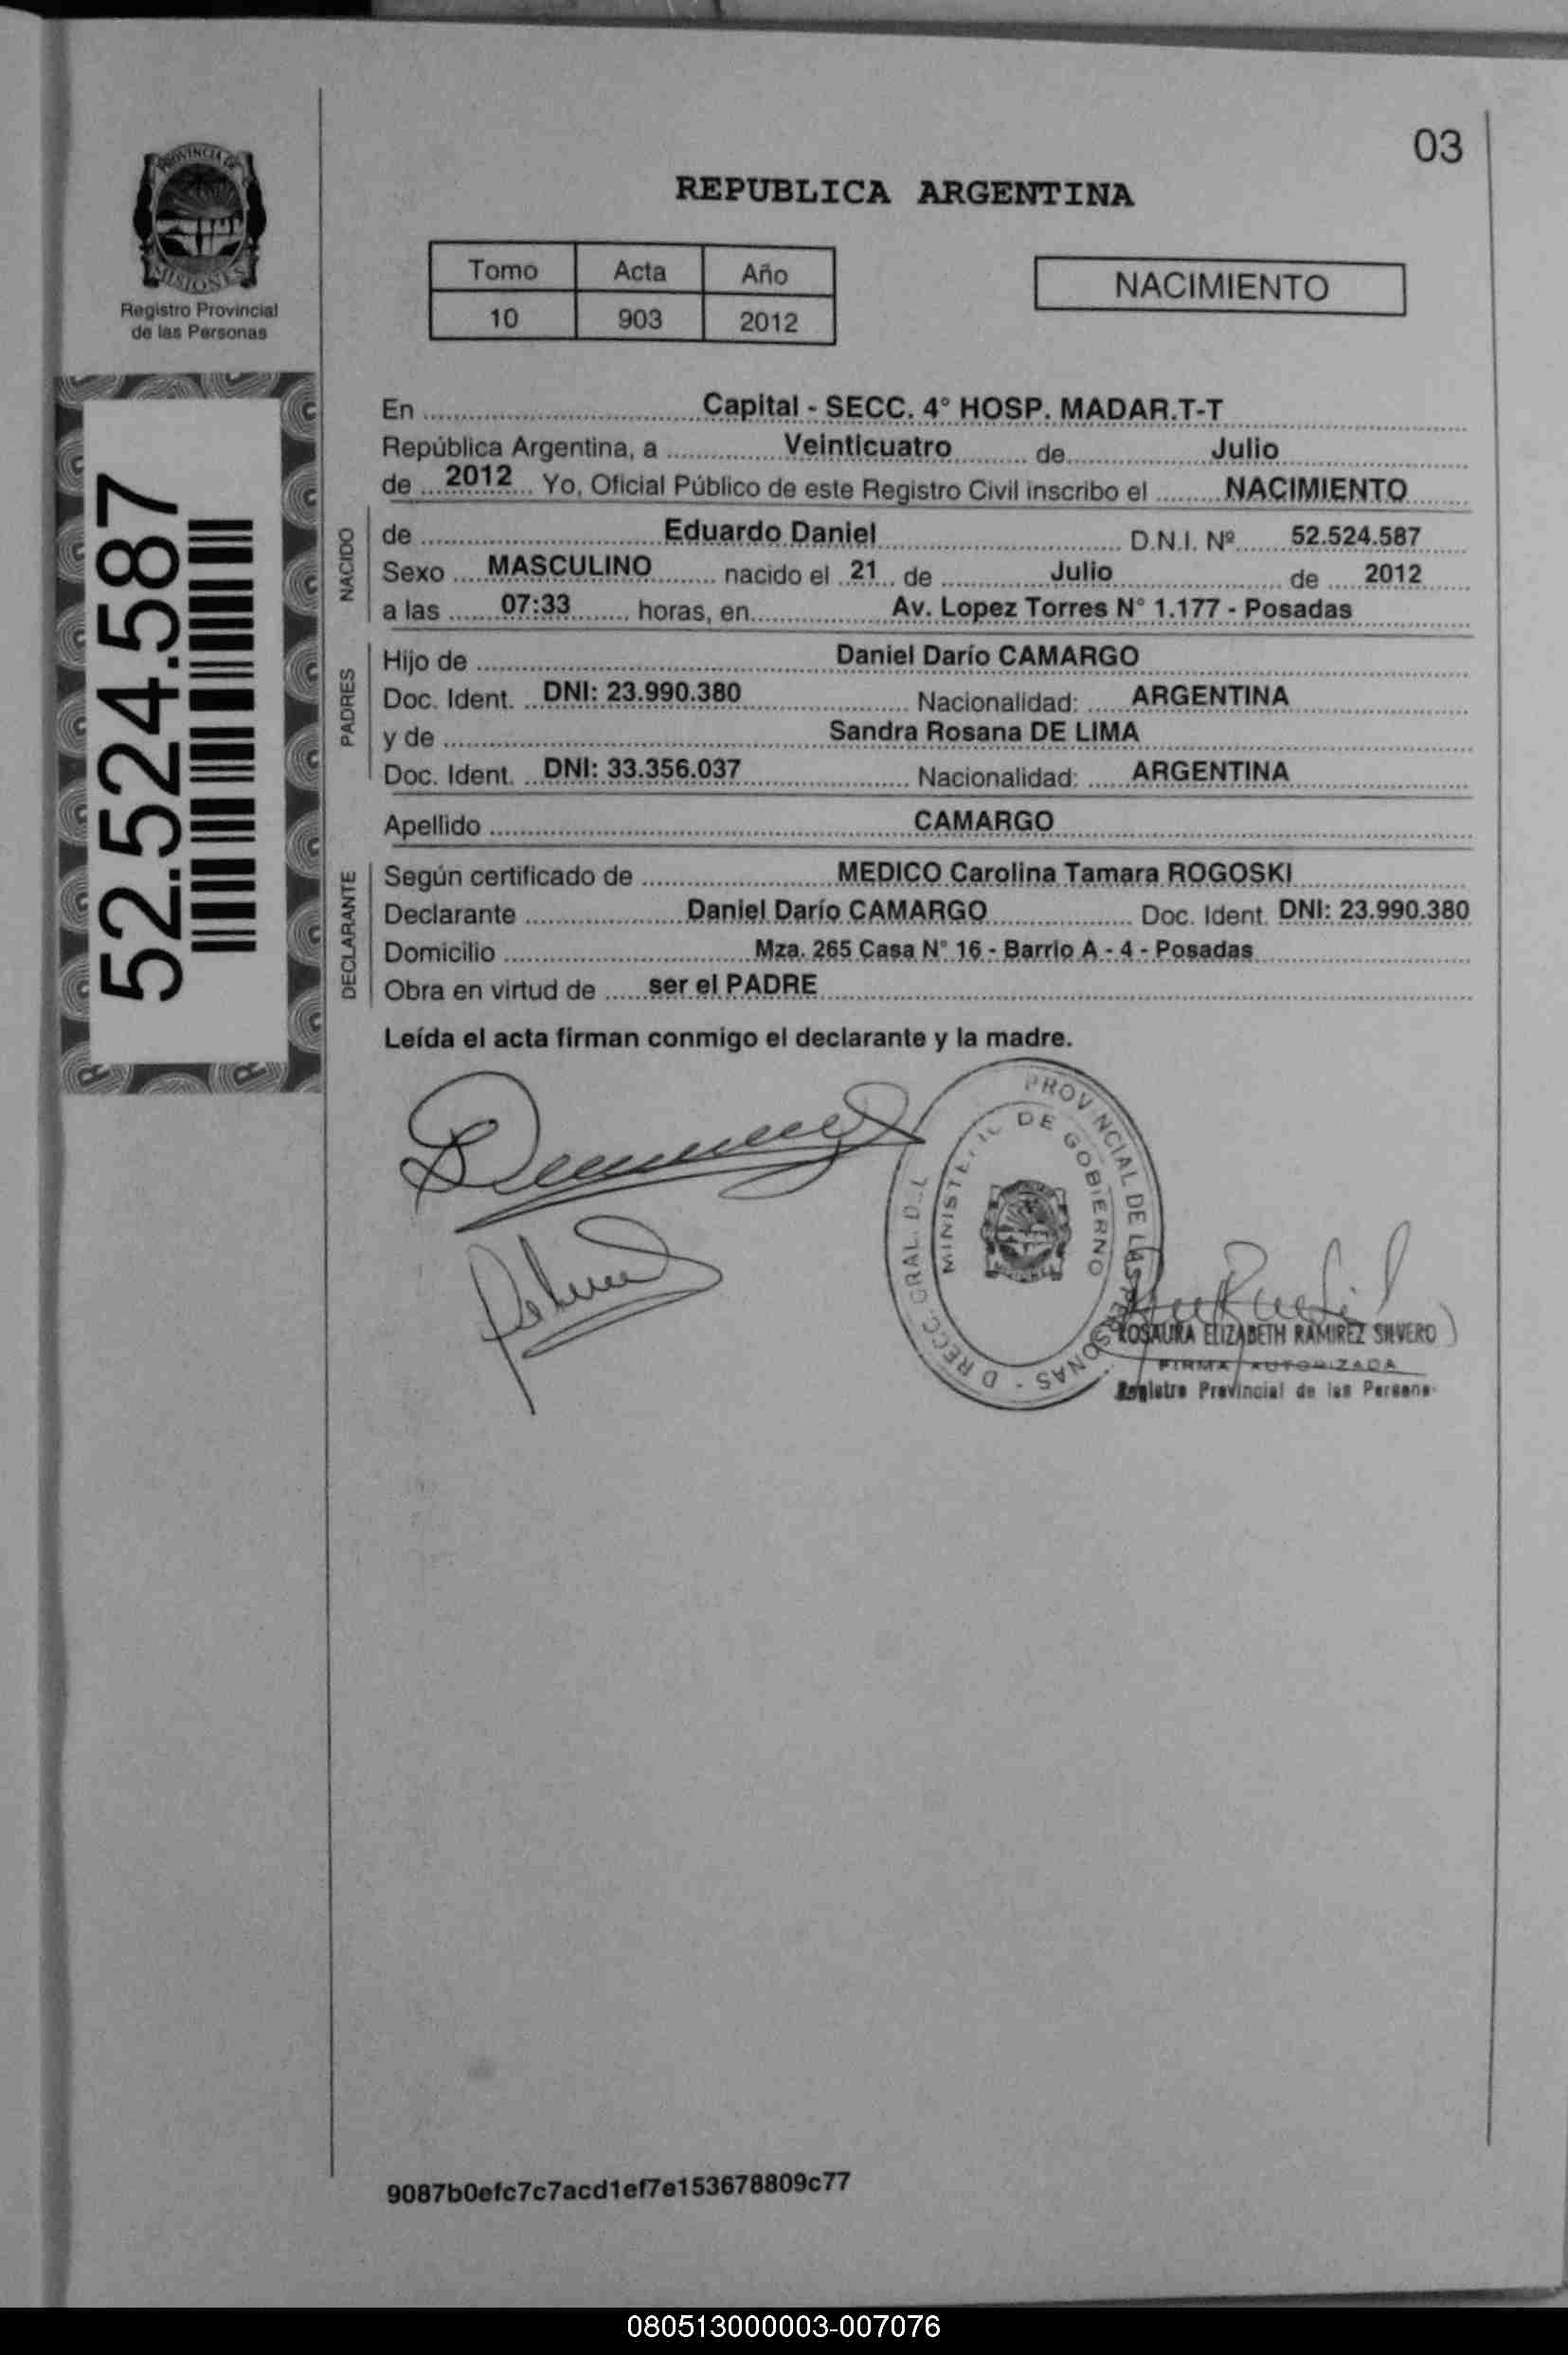 03
PROVINCIA DE
MISIONES
Registro Provincial
de las Personas
REPUBLICA ARGENTINA
Tomo Acta Año
10 903 2012
NACIMIENTO
52.524.587
En Capital - SECC. 4° HOSP. MADAR.T-T
República Argentina, a Veinticuatro de Julio
de 2012 Yo, Oficial Público de este Registro Civil inscribo el NACIMIENTO
NACIDO
de Eduardo Daniel D.N.I. Nº 52.524.587
Sexo MASCULINO nacido el 21 de Julio de 2012
a las 07:33 horas, en Av. Lopez Torres N° 1.177 - Posadas
PADRES
Hijo de Daniel Darío CAMARGO
Doc. Ident. DNI: 23.990.380 Nacionalidad: ARGENTINA
y de Sandra Rosana DE LIMA
Doc. Ident. DNI: 33.356.037 Nacionalidad: ARGENTINA
Apellido CAMARGO
DECLARANTE
Según certificado de MEDICO Carolina Tamara ROGOSKI
Declarante Daniel Darío CAMARGO Doc. Ident. DNI: 23.990.380
Domicilio Mza. 265 Casa N° 16 - Barrio A - 4 - Posadas
Obra en virtud de ser el PADRE
Leída el acta firman conmigo el declarante y la madre.
PROVINCIAL DE LAS PERSONAS
DE GOBIERNO
ROSAURA ELIZABETH RAMIREZ SILVERO
FIRMA AUTORIZADA
Registro Provincial de las Persona
9087b0efc7c7acd1ef7e153678809c77
080513000003-007076